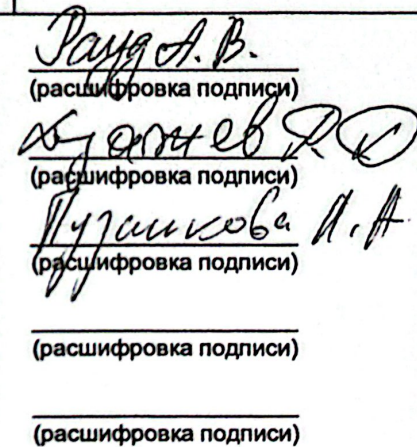 Рауд А. В.
(расшифровка подписи)
Р. Х
(расшифровка подписи)
Пузанкова А. А
(расшифровка подписи)
(расшифровка подписи)
(расшифровка подписи)